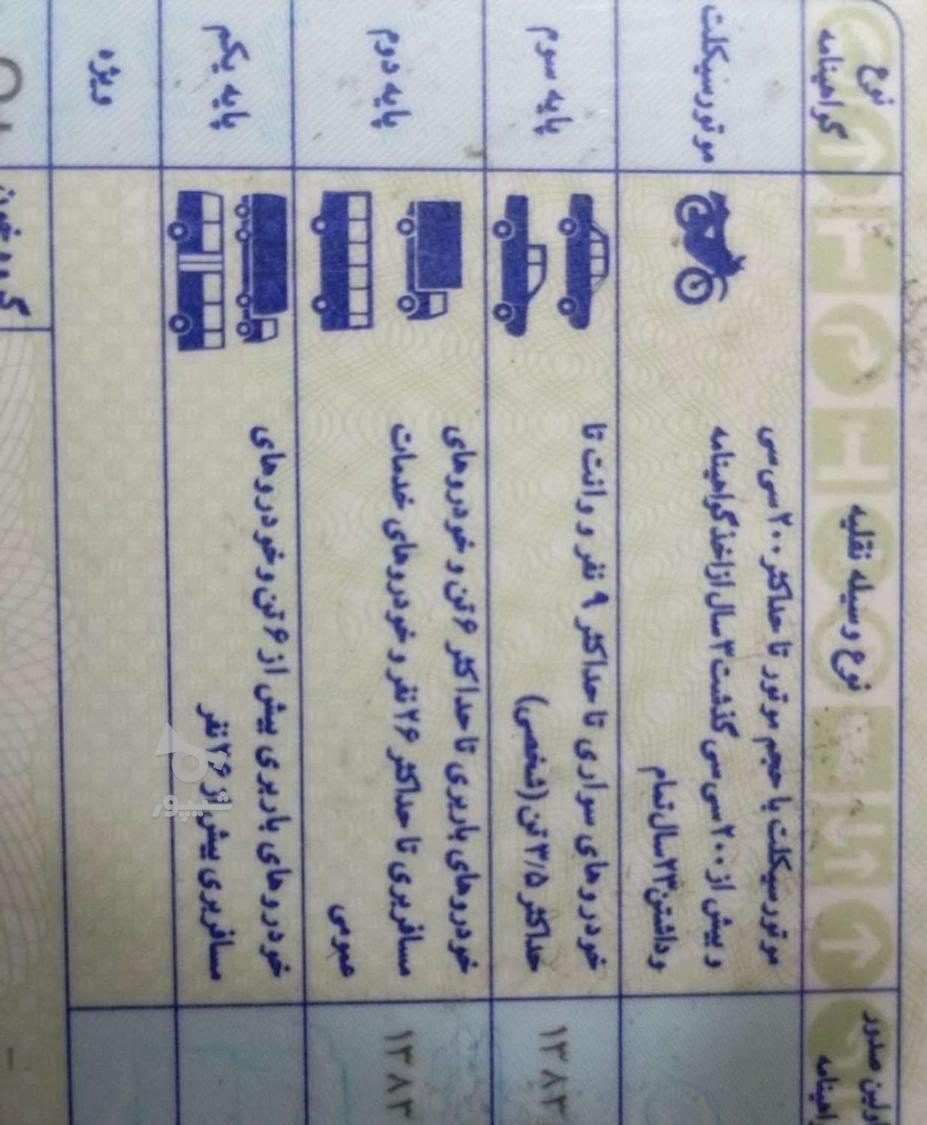 نوع
گواهینامه
نوع وسیله نقلیه
اولین صدور
موتورسیکلت
موتورسیکلت با حجم موتور تا حداکثر ۲۰۰ سی سی
و بیش از ۲۰۰ سی سی گذشت ۳ سال از اخذ گواهینامه
و داشتن ۲۳ سال تمام
پایه سوم
خودروهای سواری تا حداکثر ۹ نفر و وانت تا
حداکثر ۳/۵ تن (شخصی)
۱۳۸۳
پایه دوم
خودروهای باربری تا حداکثر ۶ تن و خودروهای
مسافربری تا حداکثر ۲۶ نفر و خودروهای خدمات
عمومی
۱۳۸۳
پایه یکم
خودروهای باربری بیش از ۶ تن و خودروهای
مسافربری بیش از ۲۶ نفر
ویژه
شیپور